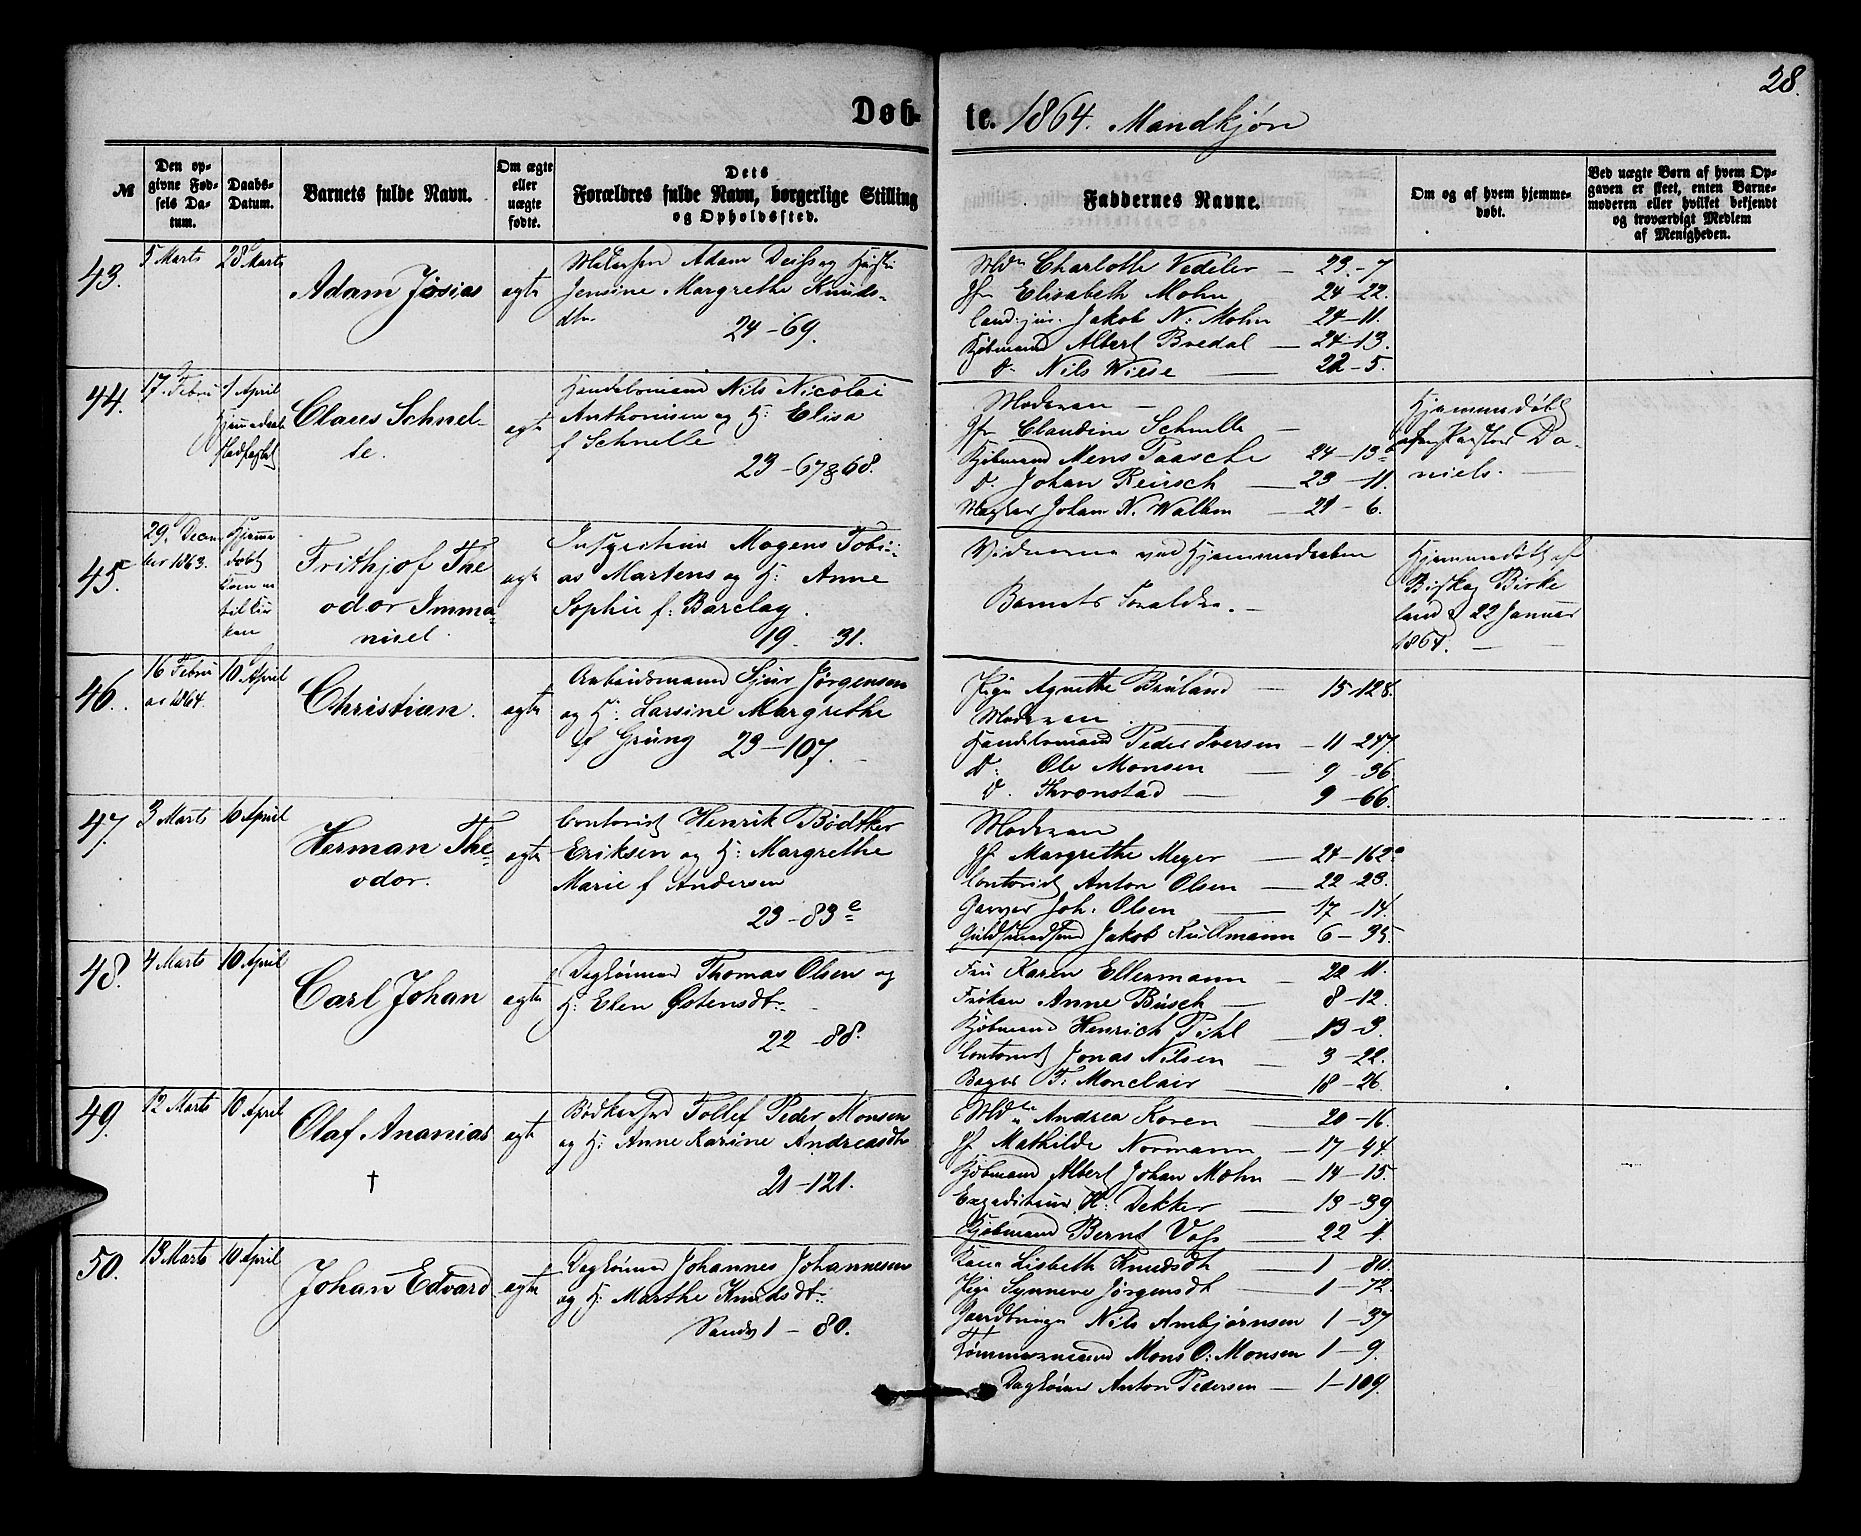 28.
Døb-te. 1864. Mandkjøn
№
Den op-
givne Fød-
sels Da-
tum.
Daabs-
Datum.
Barnets fulde Navn.
Om ægte
eller
uægte
fødte.
Dets
Forældres fulde Navn, borgerlige Stilling
og Opholdssted.
Faddernes Navne.
Om og af hvem hjemme-
døbt.
Ved uægte Børn af hvem Op-
gaven er skeet, enten Barne-
moderen eller hvilket bekjendt
og troværdigt Medlem
af Menigheden.
43.
5 Marts
28 Marts
Adam Josias
ægte
Adam og Hustru
Jensine Margrethe Knuds-
dtr.
24-69.
Md. Charlotte Vedeler — 23.-7
Jfr Elisabeth Mohn 24-22.
Jakob N: Mohn — 24-11.
Kjøbmand Albert Bredal — 24-13.
d. Nils Wiese — 22-5.
44.
17. Febru
1 April
Claus Schnel-
le.
ægte
Handelsmand Nils Nicolai
Anthonisen og H: Elisa
f Schnelle
23-67&68.
Moderen —
Jfr Claudine Schnelle —
Kjøbmand Mens Taasche 24-13
d. Johan Reusch — 23-11.
Johan N. Wallem — 21-6.
Hjemmedøbt
af Pastor Da-
niels. —
45.
29. Decem
ber 1863.
Hjemme
døbt
Frithjof The
odor Imma-
nuel.
ægte
Inspecteur Mogens Tobi-
as Martens og H: Anne
Sophie f: Barclay.
19 31.
Vidnerne ved Hjemmedaaben
Barnets Forældre. —
Hjemmedøbt af
Biskop Birke
land d 22 Januar
1864. —
46.
16 Febru
ar 1864.
10 April
Christian.
ægte
Arbeidsmand Sjur Jørgensen
og H: Larsine Margrethe
f Grung 23-107.
Pige Agnethe Bruland — 15-128.
Moderen.
Handelsmand Peder Iversen — 11-247.
d: Ole Monsen — 9-36.
d. Thronstad — 9-66.
47.
3 Marts
10 April
Herman The-
odor.
ægte
Contorist Henrik Bødtker
Eriksen og H: Margrethe
Marie f Andersen
23-83 e
Moderen
Jf Margrethe Meyer — 24-162
Contorist Anton Olsen — 22-23.
Garver Joh: Olsen — 17-14.
Guldsmedsvend Jakob Kullmann 6-35.
48.
4 Marts
10 April
Carl Johan
ægte
Dagleiner Thomas Olsen og
H: Elen Østensdt.
22-88.
Fru Karen Ellermann — 22-11.
Frøken Anne Busch — 8-12.
Kjøbmand Henrich Pihl — 13-3.
Contorist Jonas Nilsen — 3-22.
Bager T: Monclair — 18-26.
49.
12 Marts
10 April
Olaf Ananias
†
ægte
Bødkersvend Tollef Peder Monsen
og H: Anne Karine Andreasdtr
21-121.
Md. Andrea Koren — 20-16.
Jf Mathilde Normann — 17-44.
Kjøbmand Albert Johan Mohn — 14-15.
Expediteur H: Dekker — 13-39
Kjøbmand Bernt Voss — 22-4.
50.
13 Marts
10 April
Johan Edvard
ægte
Dagleiner Johannes Johannesen
og H: Marthe Knudsdt:
1-80.
Kone Lisbeth Knudsdt — 1-80.
Pige Synneve Jørgensdt — 1-72.
Nils Ambjørnsen 1-37
Tømmermand Mons O: Monsen 1-9.
Dagleiner Anton Pedersen — 1-109.